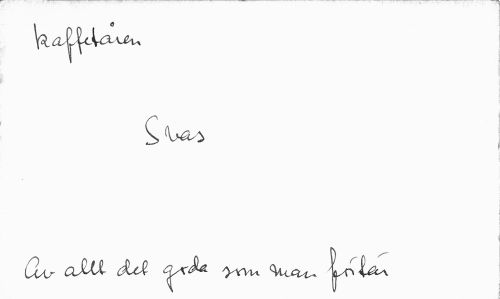 kaffetåren
Svas
Av allt det goda som man förtär